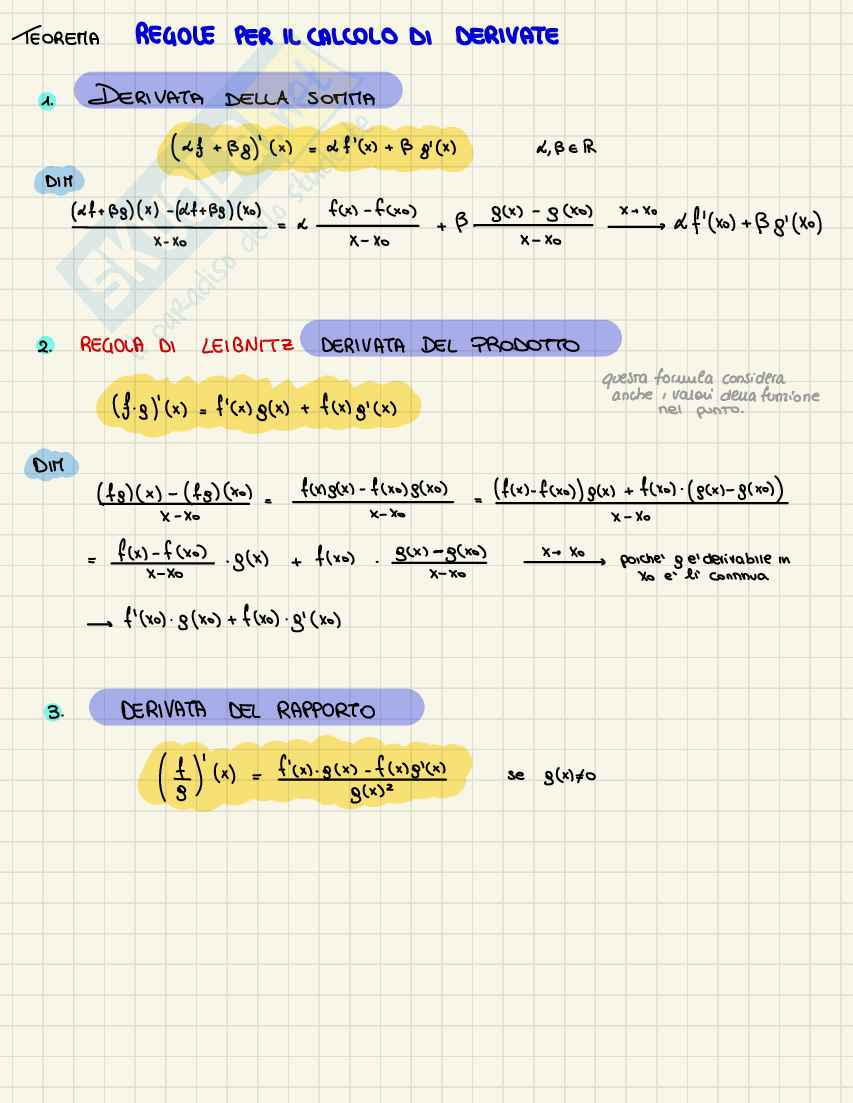 TEOREMA REGOLE PER IL CALCOLO DI DERIVATE
1. DERIVATA DELLA SOMMA
(αf + βg)'(x) = αf'(x) + β g'(x) α,β ∈ R
DIM
((αf+βg)(x) - (αf+βg)(x₀))/(x-x₀) = α (f(x) - f(x₀))/(x-x₀) + β (g(x) - g(x₀))/(x-x₀) x→x₀ ⟶ αf'(x₀) + βg'(x₀)
SKUOLA.net
il paradiso dello studente
2. REGOLA DI LEIBNITZ DERIVATA DEL PRODOTTO
(f·g)'(x) = f'(x)g(x) + f(x)g'(x)
questa formula considera
anche i valori della funzione
nel punto.
DIM
((fg)(x) - (fg)(x₀))/(x-x₀) = (f(x)g(x) - f(x₀)g(x₀))/(x-x₀) = ((f(x)-f(x₀))g(x) + f(x₀)·(g(x)-g(x₀)))/(x-x₀)
= (f(x)-f(x₀))/(x-x₀) · g(x) + f(x₀) · (g(x)-g(x₀))/(x-x₀) x→x₀ ⟶ poiché g e' derivabile in
x₀ e' lì continua
⟶ f'(x₀)·g(x₀) + f(x₀)·g'(x₀)
3. DERIVATA DEL RAPPORTO
(f/g)'(x) = (f'(x)·g(x) - f(x)g'(x))/g(x)² se g(x)≠0